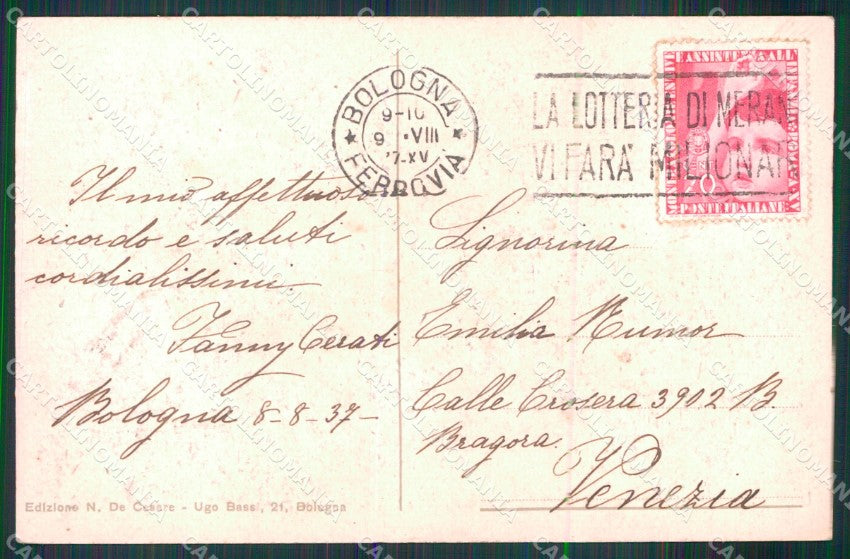 BOLOGNA
9-10
9 · VIII
37-XV
FERROVIA
LA LOTTERIA DI MERAN
VI FARÀ MILIONAR
POSTE ITALIANE
Il mio affettuoso
ricordo e saluti
cordialissimi.
Fanny Cerati
Bologna 8-8-37-
Signorina
Emilia Rumor
Calle Crosera 3902 B.
Bragora.
Venezia
Edizione N. De Cesare - Ugo Bassi, 21, Bologna
CARTOLINOMANIA